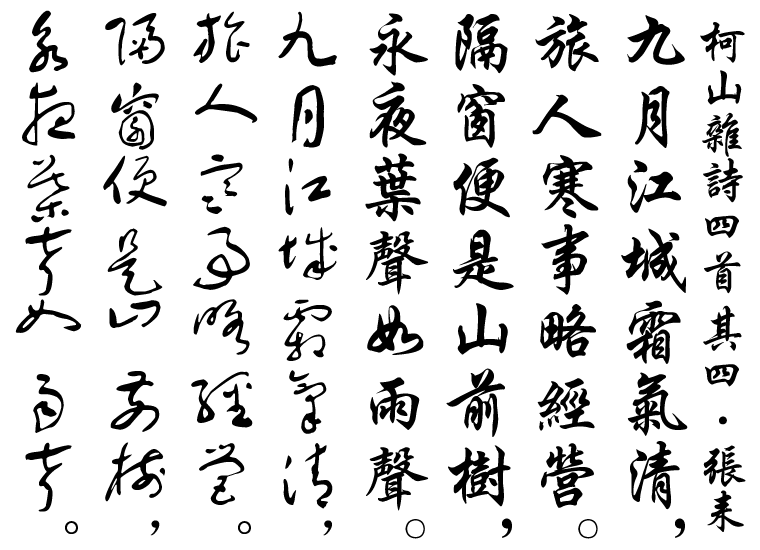 柯山雜詩四首其四·張耒
九月江城霜氣清，
旅人寒事略經營。
隔窗便是山前樹，
永夜葉聲如雨聲。
九月江城霜氣清，
旅人寒事略經營。
隔窗便是山前樹，
永夜葉聲如雨聲。